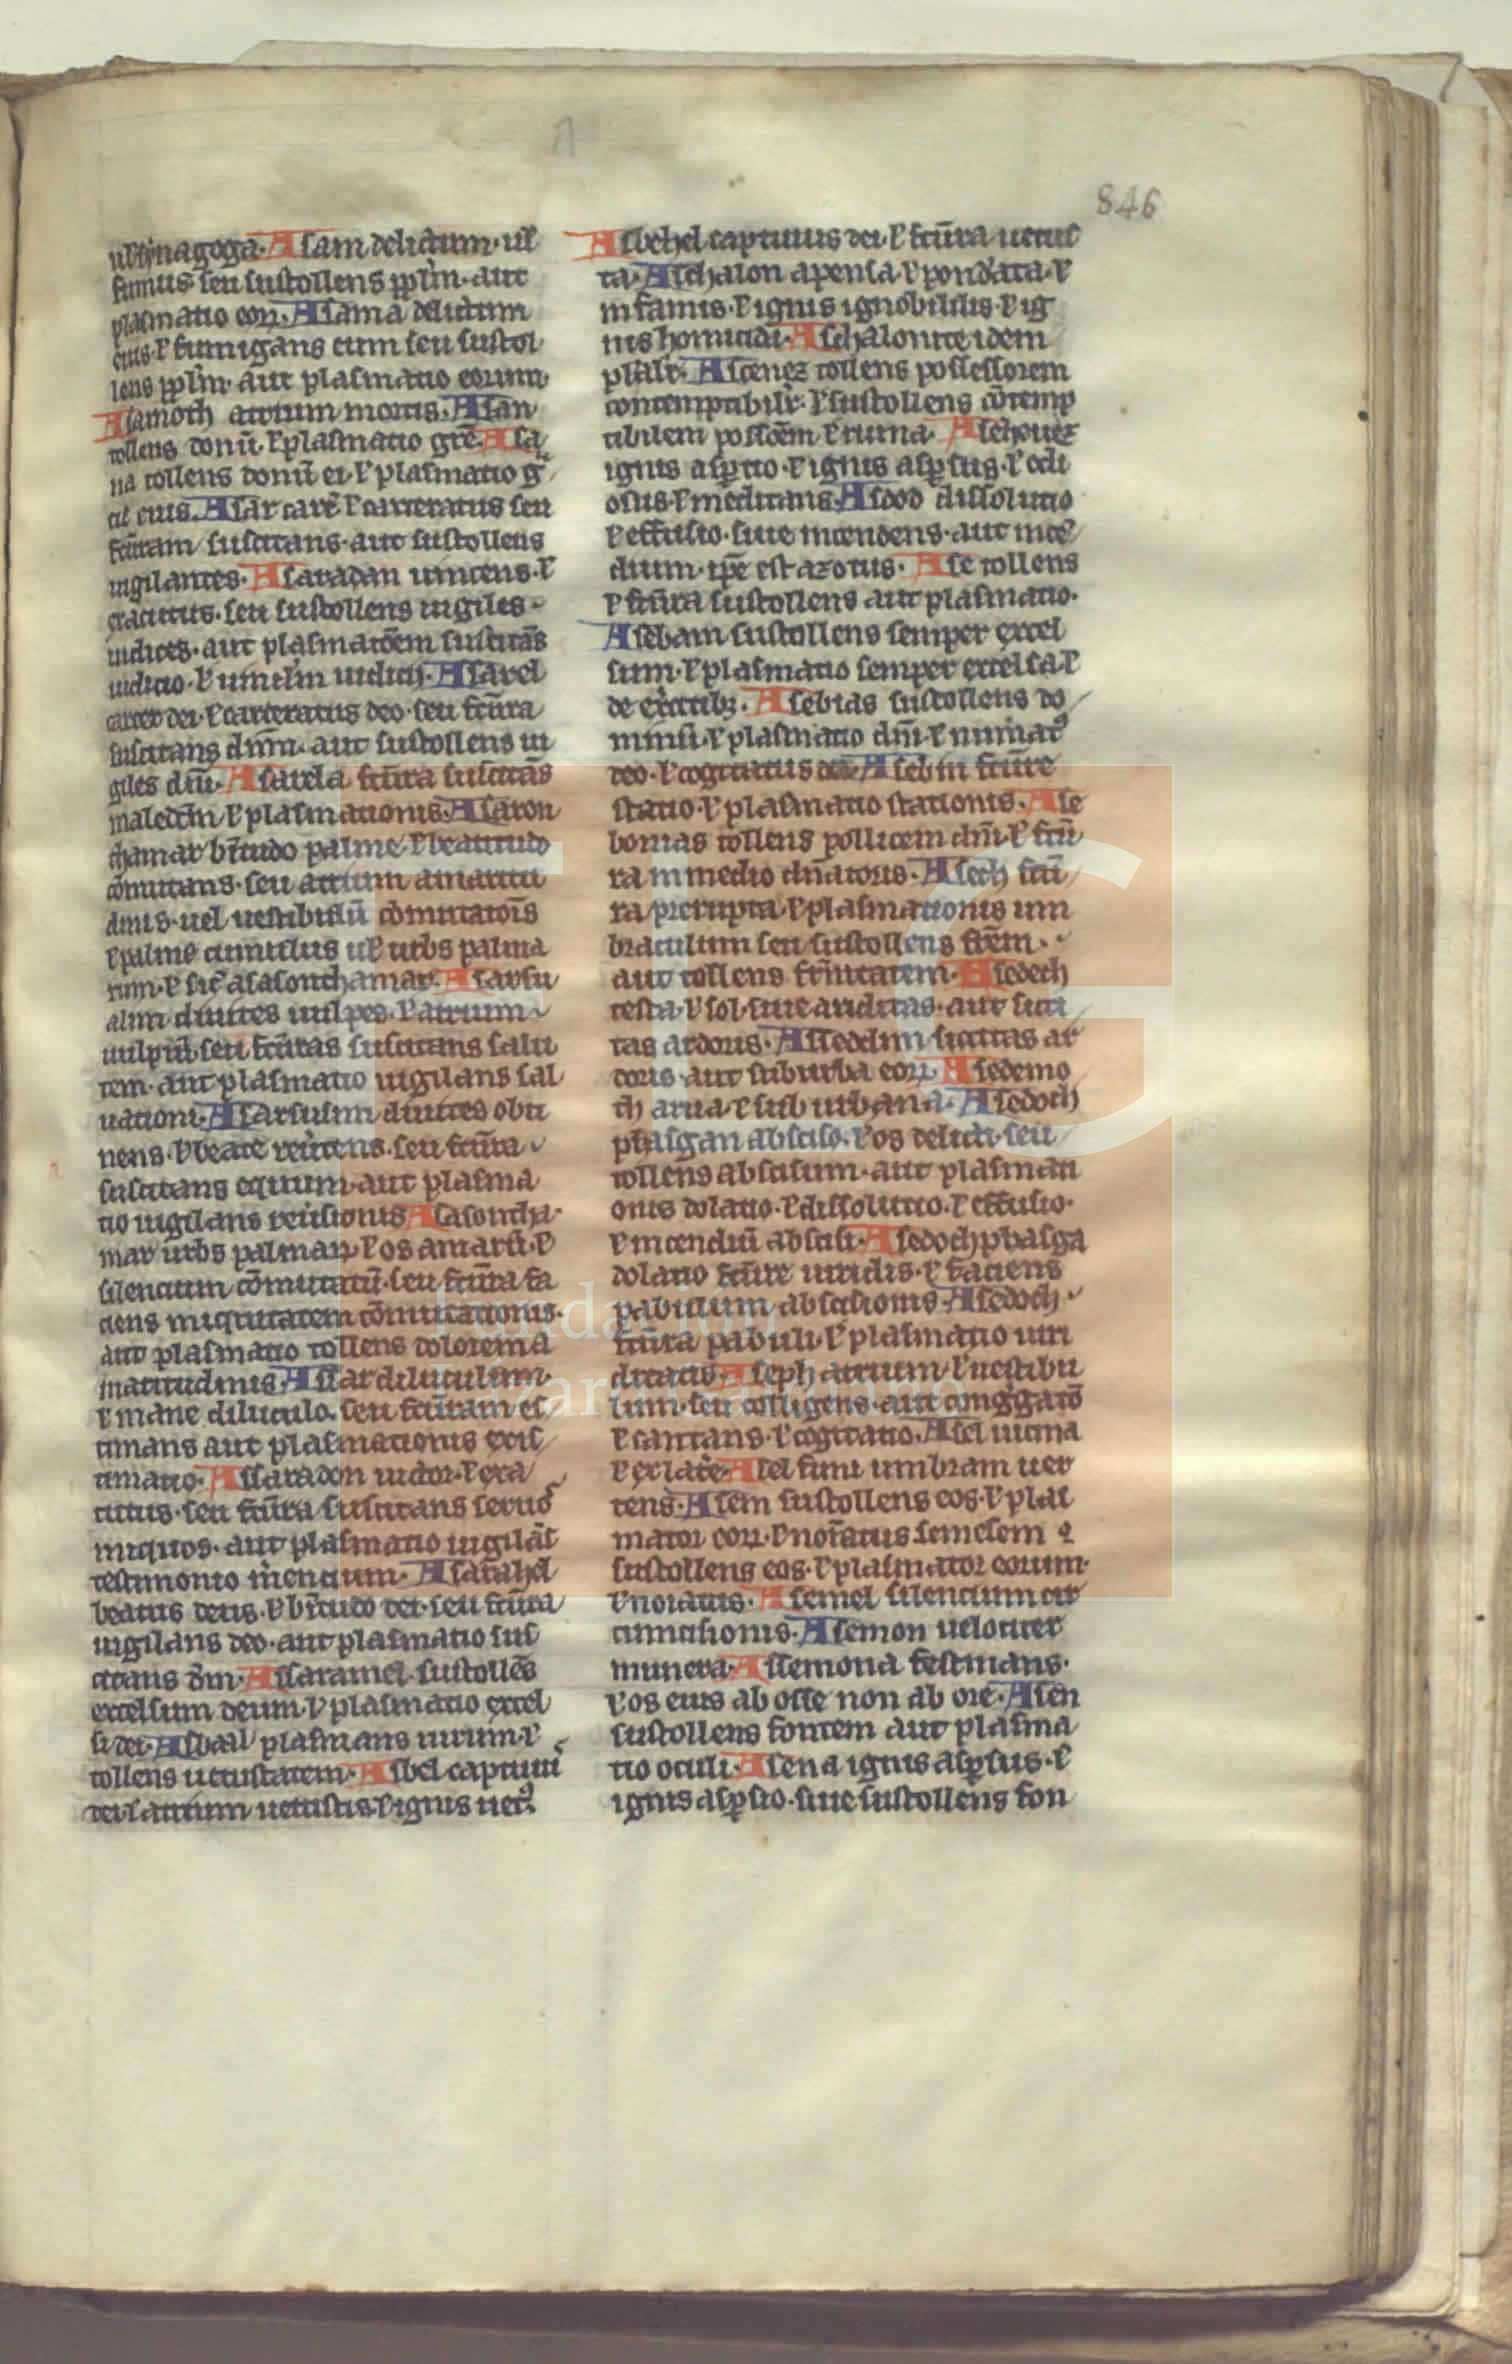 846
ul synagoga. Asam delictum. ul
fumus seu sustollens pplm. aut
plasmatio eorum. Asama delictum
eius. l fumigans eum seu sustol
lens pplm. aut plasmatio eorum.
Asamoth atrium mortis. Asan
tollens donū. l plasmatio gre. Asa
na tollens donū ei. l plasmatio g
eius. Asar l carceratus seu
fcūram suscitans. aut sustollens
uigilantes. Asaradan uincens. l
seu sustollens uigiles
iudices. aut plasmatoēm suscitās
iudicio. l Asarel
carcer dei. l carceratus deo. seu fcūra
suscitans dnm. aut sustollens ui
giles dnī. Asarela fcūra suscitās
maledcm l plasmationis. Asason
thamar palme. l beatitudo
cōmutans. seu atrium amaritu
dinis. uel uestibulū cōmutatois
l palme cumulus ul urbs palma
rum. l sic asasonthamar. Asarsu
alim diuites uulpes. l atrium
uulpiū seu fcūras suscitans salu
tem. aut plasmatio uigilans sal
uationi. Asarsusim diuites obti
nens. l beate seu fcūra
suscitans equum. aut plasma
tio uigilans Asasontha
mar urbs palmarum. l os amarū. l
silencium cōmutatū. seu fcūra fa
ciens iniquitatem cōmutationis.
aut plasmatio tollens dolorem a
maritudinis. Assar diluculum.
l mane diluculo. seu fcūram es
timans aut plasmationis exis
timatio. Assaradon uictor. l exa
cutus. seu fcūra suscitans seruo
iniquos. aut plasmatio uigilās
testimonio Asarahel
beatus deus. l dei. seu fcūra
uigilans deo. aut plasmatio sus
citans dm. Assaramel. sustollēs
excelsum deum. l plasmatio excel
si dei. Asbaal plasmans uirum. l
tollens uetustatem. Asbel captiui
dei. l atrium uetustis. l ignis
Asbehel captiuus dei. l fcūra uetus
ta. Aschalon apensa. l pondata. l
infamis. l ignis ignobililis. l ig
nis homicida. Aschalonite idem
plalr. Ascenez tollens possessorem
contemptibilr. l sustollens cōtemp
tibilem l ruina. Asehonez
ignis aspsio. l ignis aspsus. l odi
osus. l meditans. Asdod dissolutio
l effusio. siue incendens. aut ince
dium. ipe est azotus. Ase tollens
l fcūra sustollens aut plasmatio.
Asebam sustollens semper excel
sum. l plasmatio semper excelsa. l
de Asebias sustollens do
minū. l plasmatio dnī. l
deo. l cogitatus Asebin fcūre
statio. l plasmatio stationis. Ase
bonias tollens pollicem dnī. l fcū
ra in medio dnatoris. Asech fcū
ra prerupta. l plasmationis um
braculum seu sustollens
aut tollens Asedech
testa. l sol. siue ariditas. aut sici
tas ardoris. Assedelim siccitas ar
doris. aut suburba eorum. Asedemo
th arua. l suburbana. Asedoth
phasgan absciso. l os delicti. seu
tollens abscisum. aut plasmati
onis dolatio. l dissolutio. l effusio.
l incendiū abscisi. Asedoth phasga
dolatio fcūre uiridis. l faciens
pabulum abscisionis. Asedoth
fcūra pabuli. l plasmatio uiri
ditatis. Aseph atrium. l uestibu
lum. seu colligens. aut
l l cogitatio. Asel uicina
l Asel funi umbram uer
tens. Asem sustollens eos. l plas
mator eorum. l notatus semesem
sustollens eos. l plasmator eorum.
l noratus. Asemel silencium cir
cumcisionis. Asemon uelociter
munera. Assemona festinans.
l os eius ab osse non ab ore. Asen
sustollens fontem aut plasma
tio oculi. Asena ignis aspsus. l
ignis aspsio. siue sustollens fon